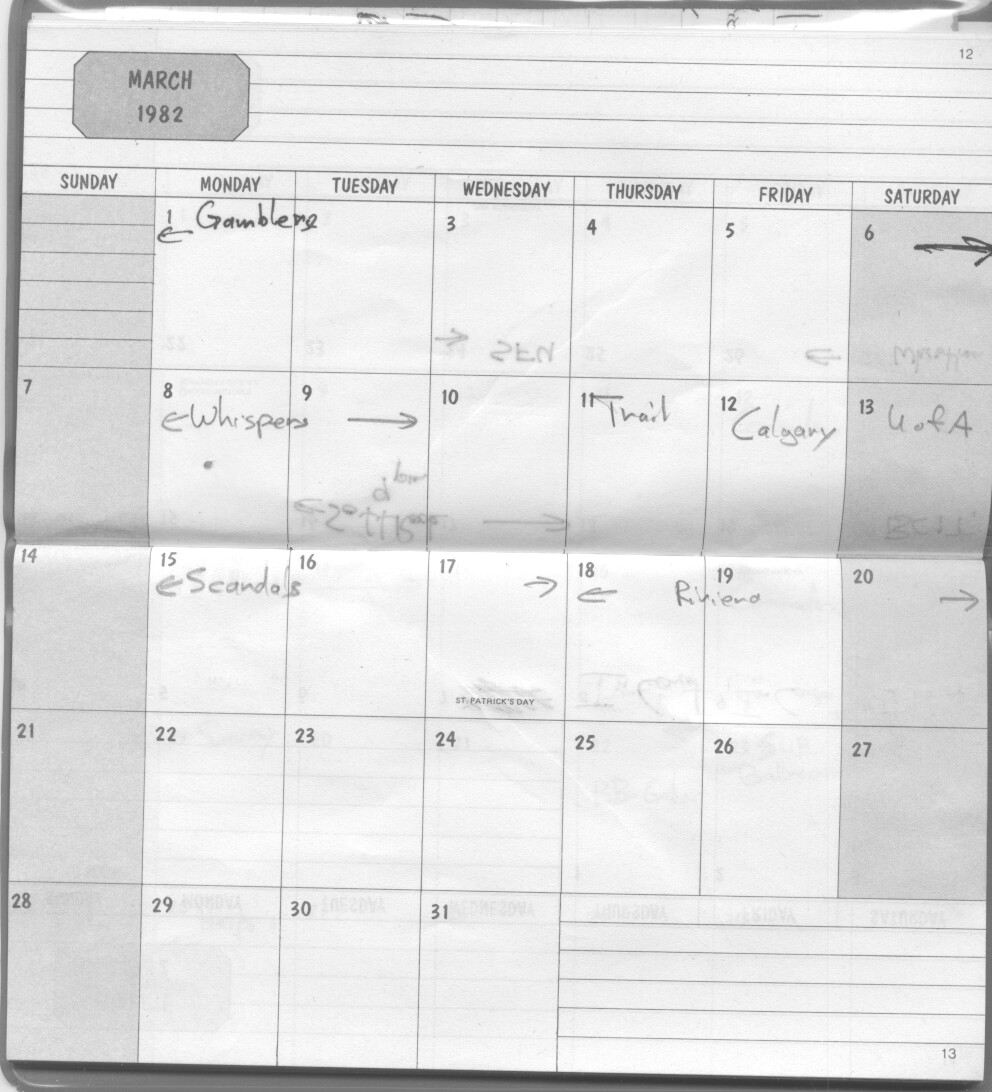 12
MARCH
1982
SUNDAY MONDAY TUESDAY WEDNESDAY THURSDAY FRIDAY SATURDAY
1 Gamblers 3 4 5 6
7 8 9 10 11 12 13
Whispers Trail Calgary U of A
14 15 16 17 18 19 20
Scandals Riviera
ST. PATRICK'S DAY
21 22 23 24 25 26 27
28 29 30 31
13